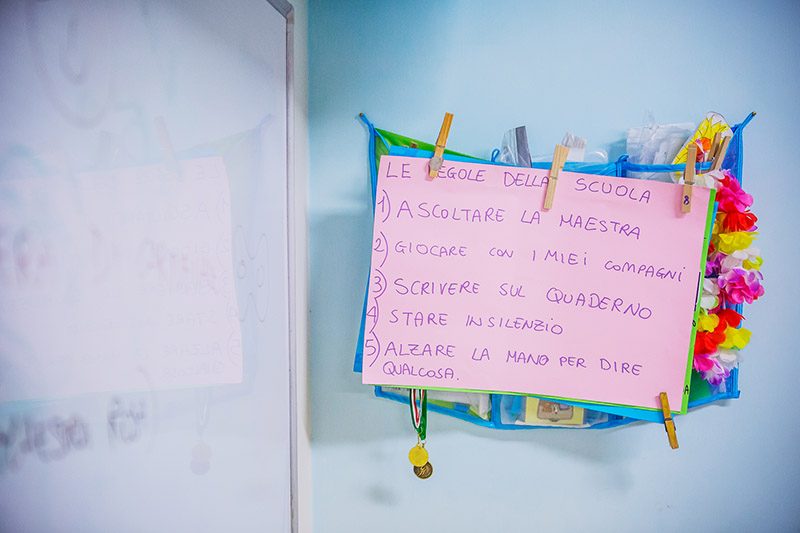 LE REGOLE DELLA SCUOLA
1) ASCOLTARE LA MAESTRA
2) GIOCARE CON I MIEI COMPAGNI
3) SCRIVERE SUL QUADERNO
4) STARE IN SILENZIO
5) ALZARE LA MANO PER DIRE
QUALCOSA.
8